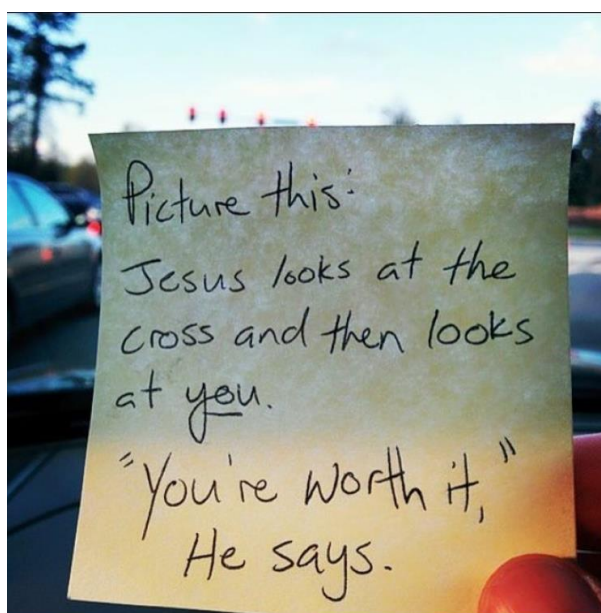 Picture this:
Jesus looks at the
cross and then looks
at you.
"You're worth it,"
He says.